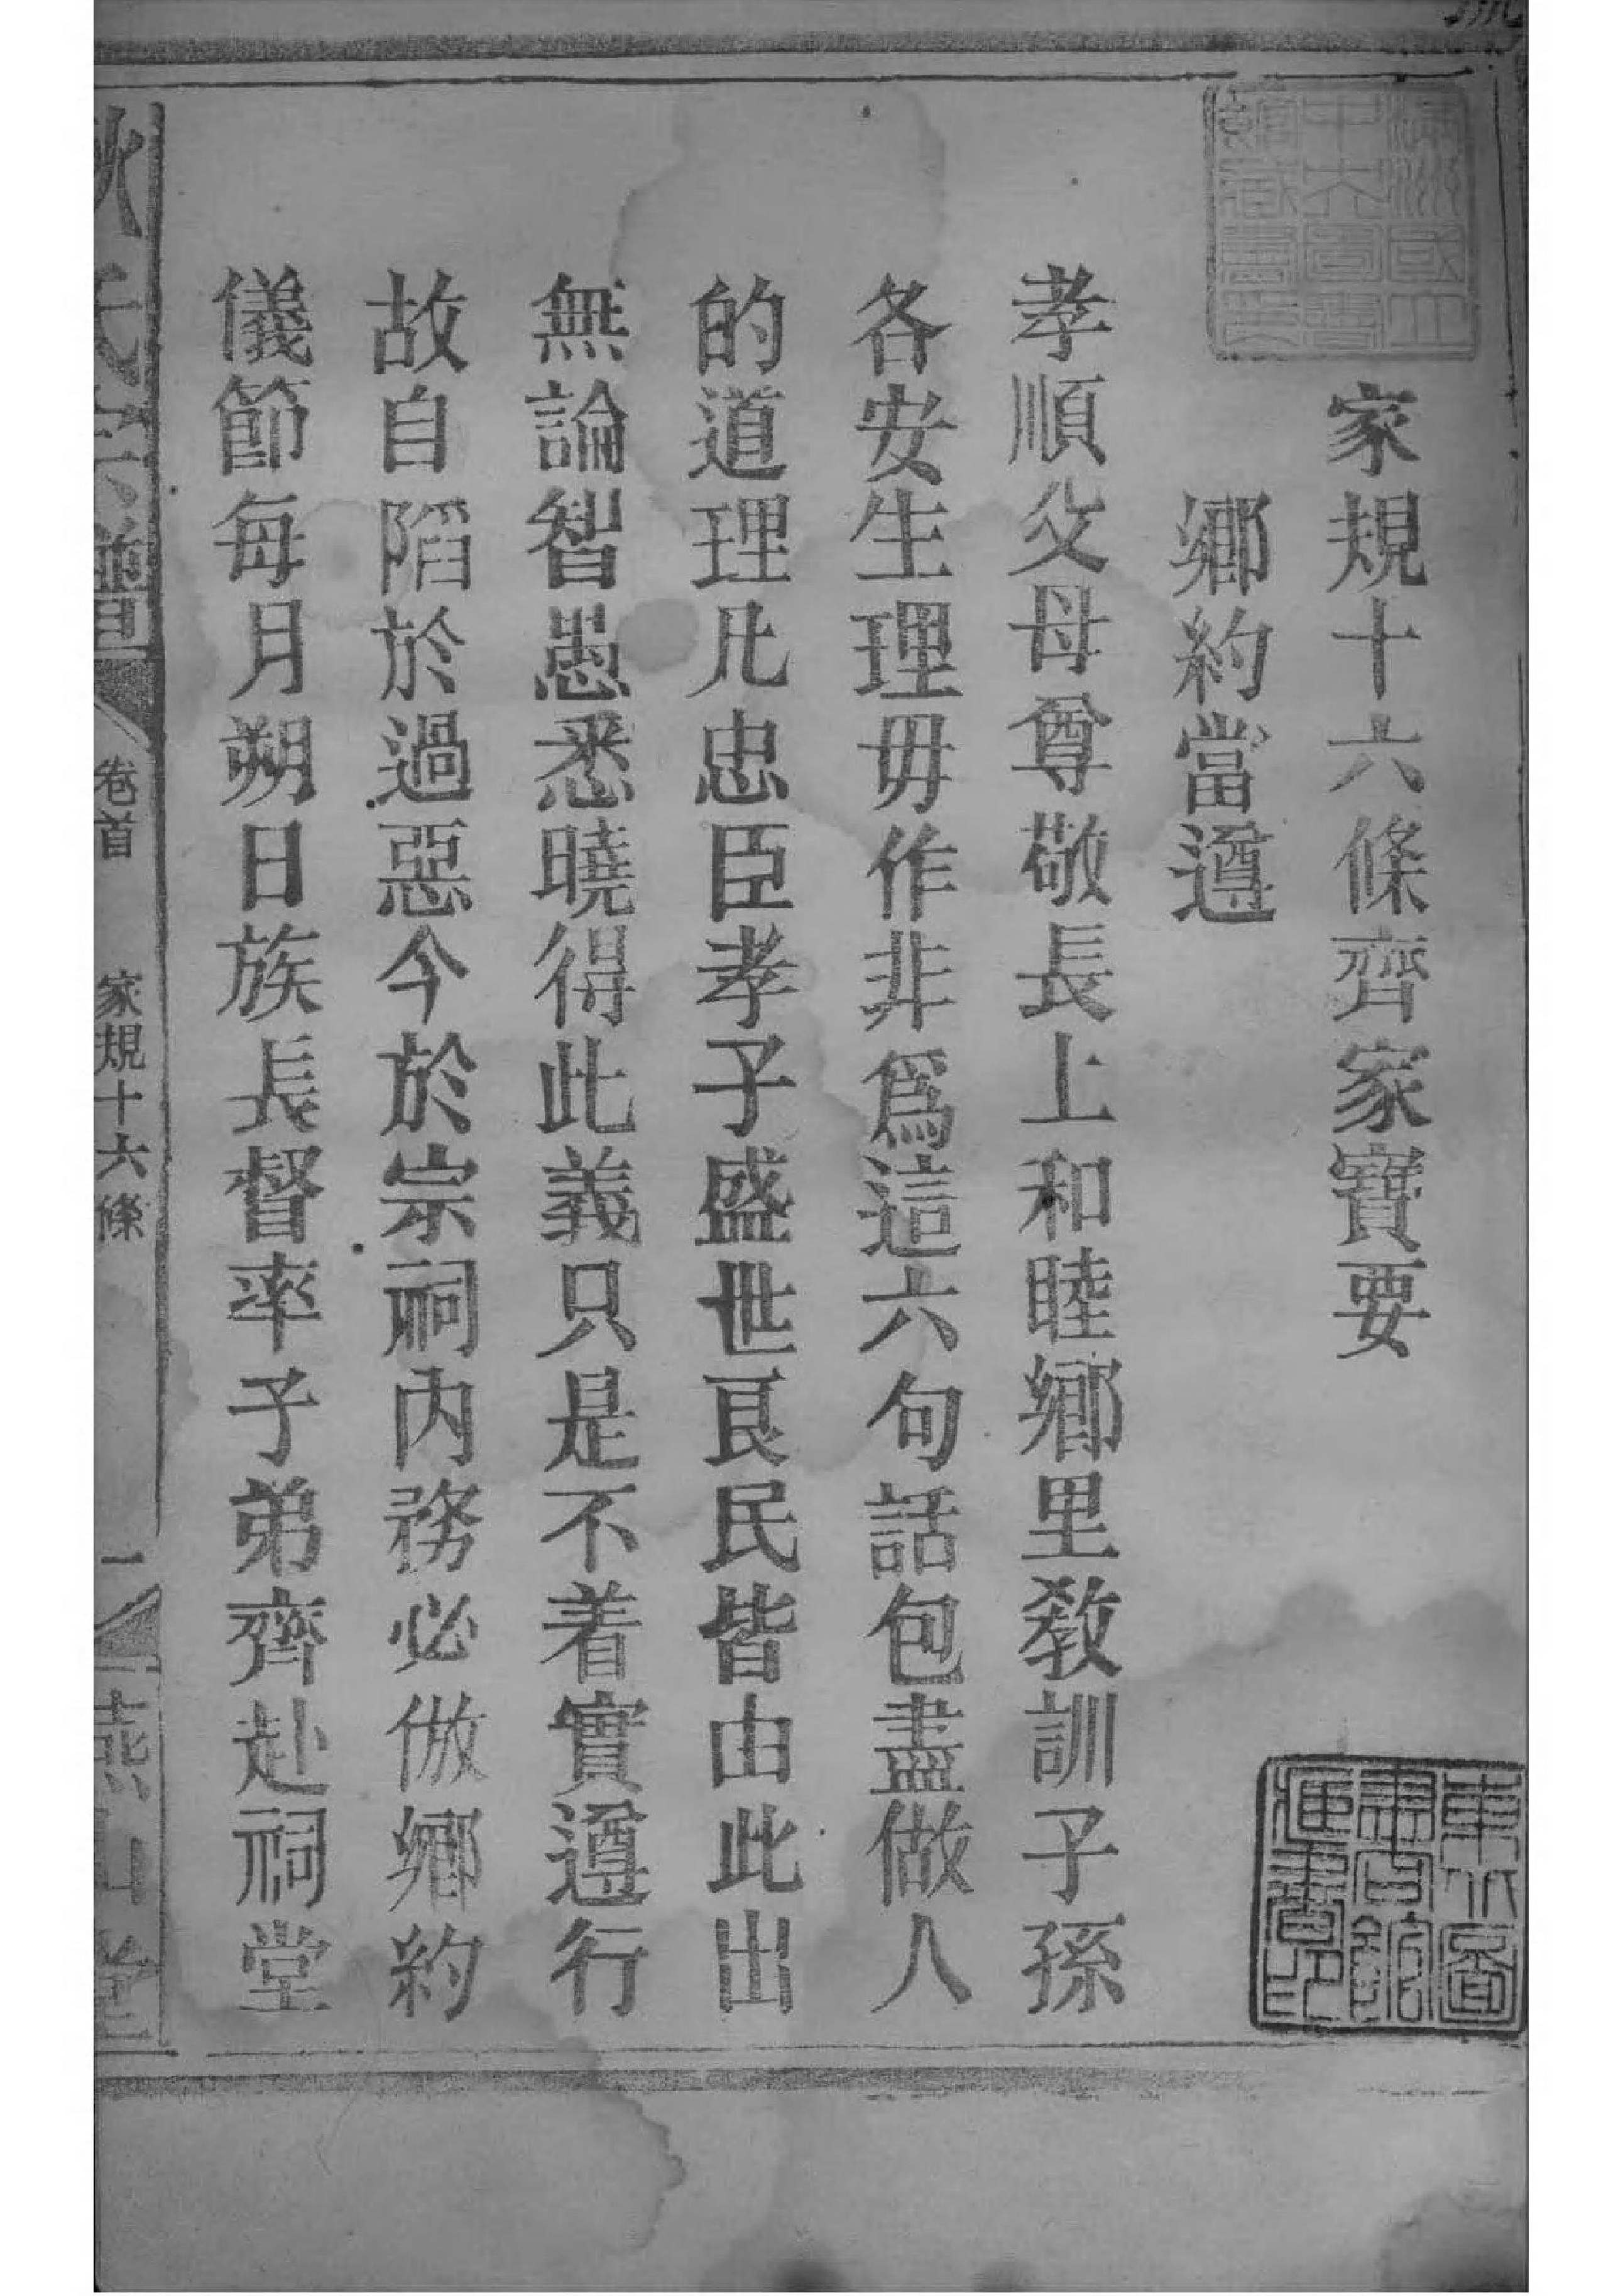 家規十六條齊家寶要
鄉約當遵
孝順父母尊敬長上和睦鄉里教訓子孫
各安生理毋作非爲這六句話包盡做人
的道理凡忠臣孝子盛世良民皆由此出
無論智愚悉曉得此義只是不着實遵行
故自陷於過惡今於宗祠內務必倣鄉約
儀節每月朔日族長督率子弟齊赴祠堂
氏宗譜
卷首
家規十六條
一
燕山堂
滿洲國立中央圖書館籌藏書印
東北圖書館藏書印